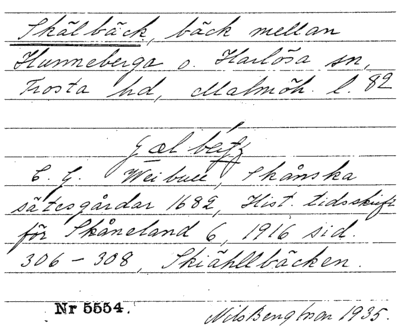 Skälbäck, bäck mellan
Hunneberga o. Harlösa sn,
Frosta hd, Malmöh. l. 82
C. G. Weibull, Skånska
sätesgårdar 1682, Hist. tidsskrift
för Skåneland 6, 1916 sid.
306-308, Skiähllbäcken.
Nr 5554.
Nils Bengtsson 1935.